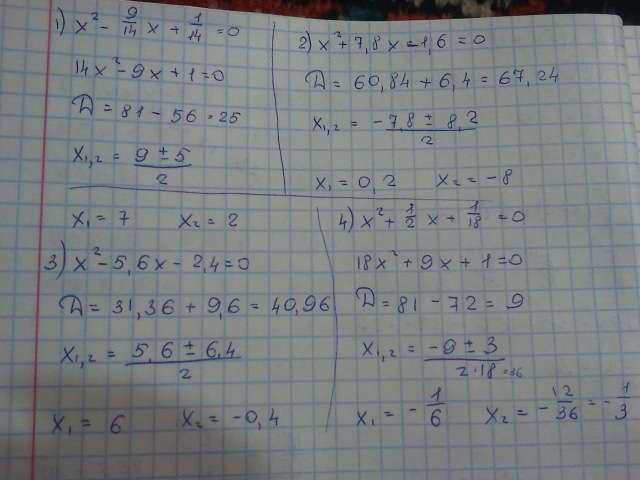 1) x² - 9/14 x + 1/14 = 0
14x² - 9x + 1 = 0
D = 81 - 56 = 25
x₁,₂ = (9 ± 5)/2
x₁ = 7 x₂ = 2
2) x² + 7,8x - 1,6 = 0
D = 60,84 + 6,4 = 67,24
x₁,₂ = (-7,8 ± 8,2)/2
x₁ = 0,2 x₂ = -8
3) x² - 5,6x - 2,4 = 0
D = 31,36 + 9,6 = 40,96
x₁,₂ = (5,6 ± 6,4)/2
x₁ = 6 x₂ = -0,4
4) x² + 1/2 x + 1/18 = 0
18x² + 9x + 1 = 0
D = 81 - 72 = 9
x₁,₂ = (-9 ± 3)/(2·18 = 36)
x₁ = -1/6 x₂ = -12/36 = -1/3